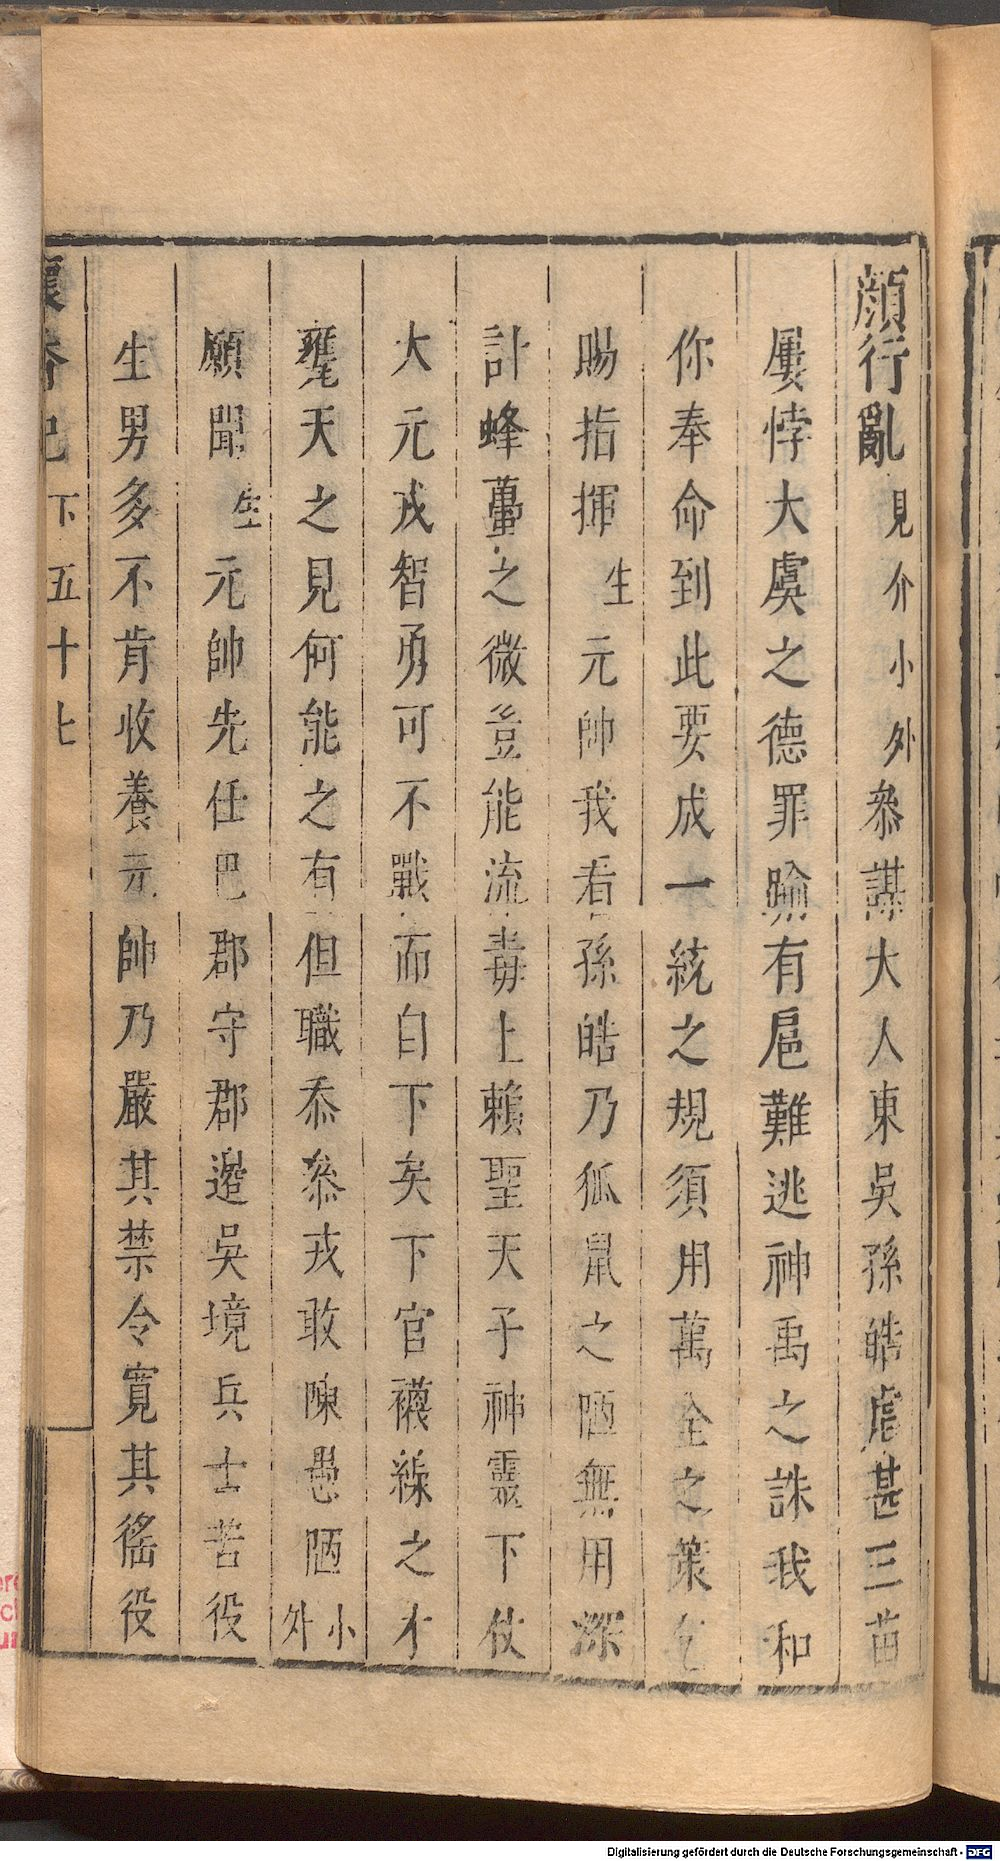 顏行亂見介小外叅謀大人東吳孫皓虐甚三苗
屢悖大虞之德罪踰有扈難逃神禹之誅我和
你奉命到此要成一統之規須用萬全之策乞
賜指揮生元帥我看孫皓乃狐鼠之陋無用深
計蜂蠆之微豈能流毒上賴聖天子神靈下仗
大元戎智勇可不戰而自下矣下官襪線之才
甕天之見何能之有但職忝叅戎敢陳愚陋小外
願聞生元帥先任巴郡守郡邊吳境兵士苦役
生男多不肯收養元帥乃嚴其禁令寬其徭役
懷香記 下 五十七
Digitalisierung gefördert durch die Deutsche Forschungsgemeinschaft - DFG